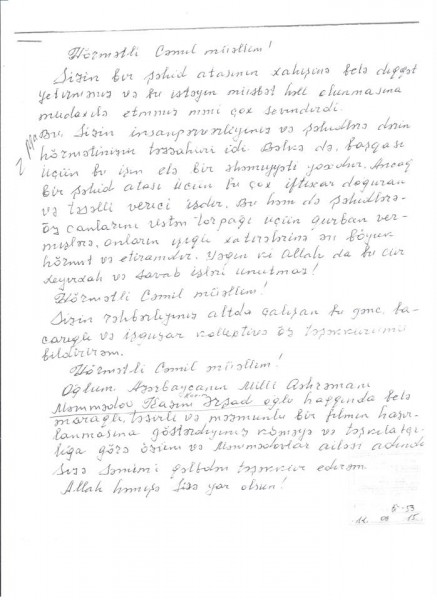 Hörmətli Cəmil müəllim!
Sizin bir şəhid atasının xahişinə belə diqqət
yetirməniz və bu istəyin müsbət həll olunmasına
müdaxilə etməniz məni çox sevindirdi.
Bu, Sizin insanpərvərliyiniz və şəhidlərə dərin
hörmətinizin təzahürü idi. Bəlkə də, başqası
üçün bu işin elə bir əhəmiyyəti yoxdur. Ancaq
bir şəhid atası üçün bu çox iftixar doğuran
və təsəlli verici işdir. Bu həm də şəhidlərə-
öz canlarını vətən torpağı üçün qurban ver-
mişlərə, onların işıqlı xatirələrinə ən böyük
hörmət və ehtiramdır. Yəqin ki Allah da bu cür
xeyirxah və savab işləri unutmaz!
Hörmətli Cəmil müəllim!
Sizin rəhbərliyiniz altda çalışan bu gənc, ba-
carıqlı və işgüzar kollektivə öz təşəkkürümü
bildirirəm.
Hörmətli Cəmil müəllim!
Oğlum, Azərbaycanın Milli Qəhrəmanı
Məmmədov Rşad oğlu haqqında belə
maraqlı, təsirli və məzmunlu bir filmin hazır-
lanmasına göstərdiyiniz köməyə və təşkilatçı-
lığa görə özüm və Məmmədovlar ailəsi adından
Sizə səmimi qəlbdən təşəkkür edirəm.
Allah həmişə Sizə yar olsun!